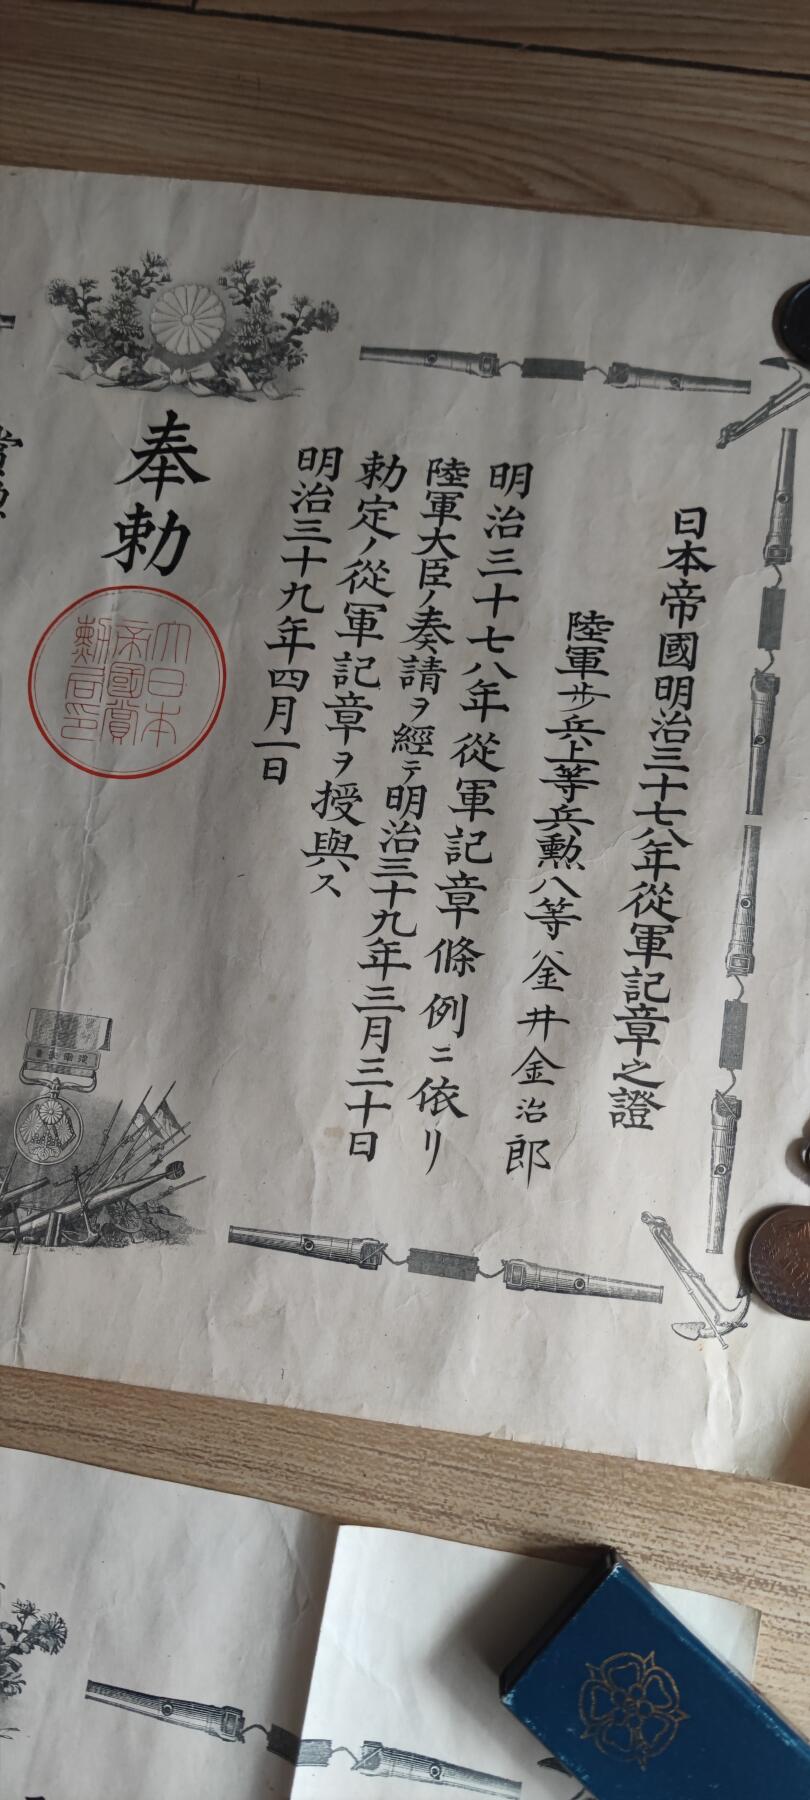 日本帝國明治三十七八年從軍記章之證
陸軍步兵上等兵勲八等金井金治郎
明治三十七八年從軍記章條例ニ依リ
陸軍大臣ノ奏請ヲ經テ明治三十九年三月三十日
勅定ノ從軍記章ヲ授與ス
明治三十九年四月一日
奉勅
大日本
帝國賞
勲局印